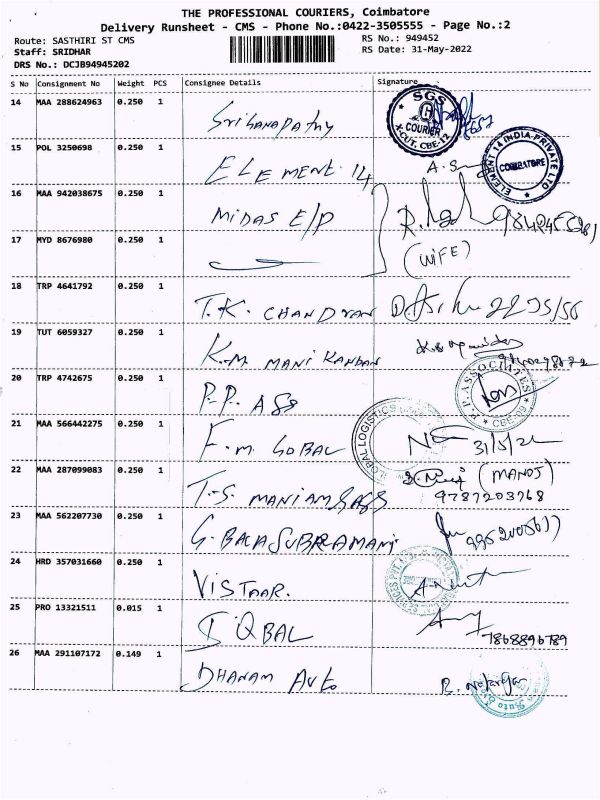 THE PROFESSIONAL COURIERS, Coimbatore
Delivery Runsheet - CMS - Phone No.:0422-3505555 - Page No.:2
Route: SASTHIRI ST CMS RS No.: 949452
Staff: SRIDHAR RS Date: 31-May-2022
DRS No.: DCJB94945202
S No Consignment No Weight PCS Consignee Details Signature
14 MAA 288624963 0.250 1 Sri Ganapathy SGS COURIER X-CUT, CBE-12
15 POL 3250698 0.250 1 ELEMENT 14 ELEMENT 14 INDIA PRIVATE LTD COIMBATORE
16 MAA 942038675 0.250 1 MIDAS E/P
17 MYD 8676980 0.250 1 (WIFE)
18 TRP 4641792 0.250 1 T.K. CHANDRAN
19 TUT 6059327 0.250 1 K.M. MANIKANDAN
20 TRP 4742675 0.250 1 P.P. ASS P.P. ASSOCIATES CBE-09
21 MAA 566442275 0.250 1 F.M. GOBAL GLOBAL LOGISTICS 31/5/22
22 MAA 287099083 0.250 1 T.S. MANIAM (MANOJ)
9787203768
23 MAA 562207730 0.250 1 G. BALASUBRAMANI
24 HRD 357031660 0.250 1 VISTAAR.
25 PRO 13321511 0.015 1 IQBAL 7868896789
26 MAA 291107172 0.149 1 DHANAM AUTO